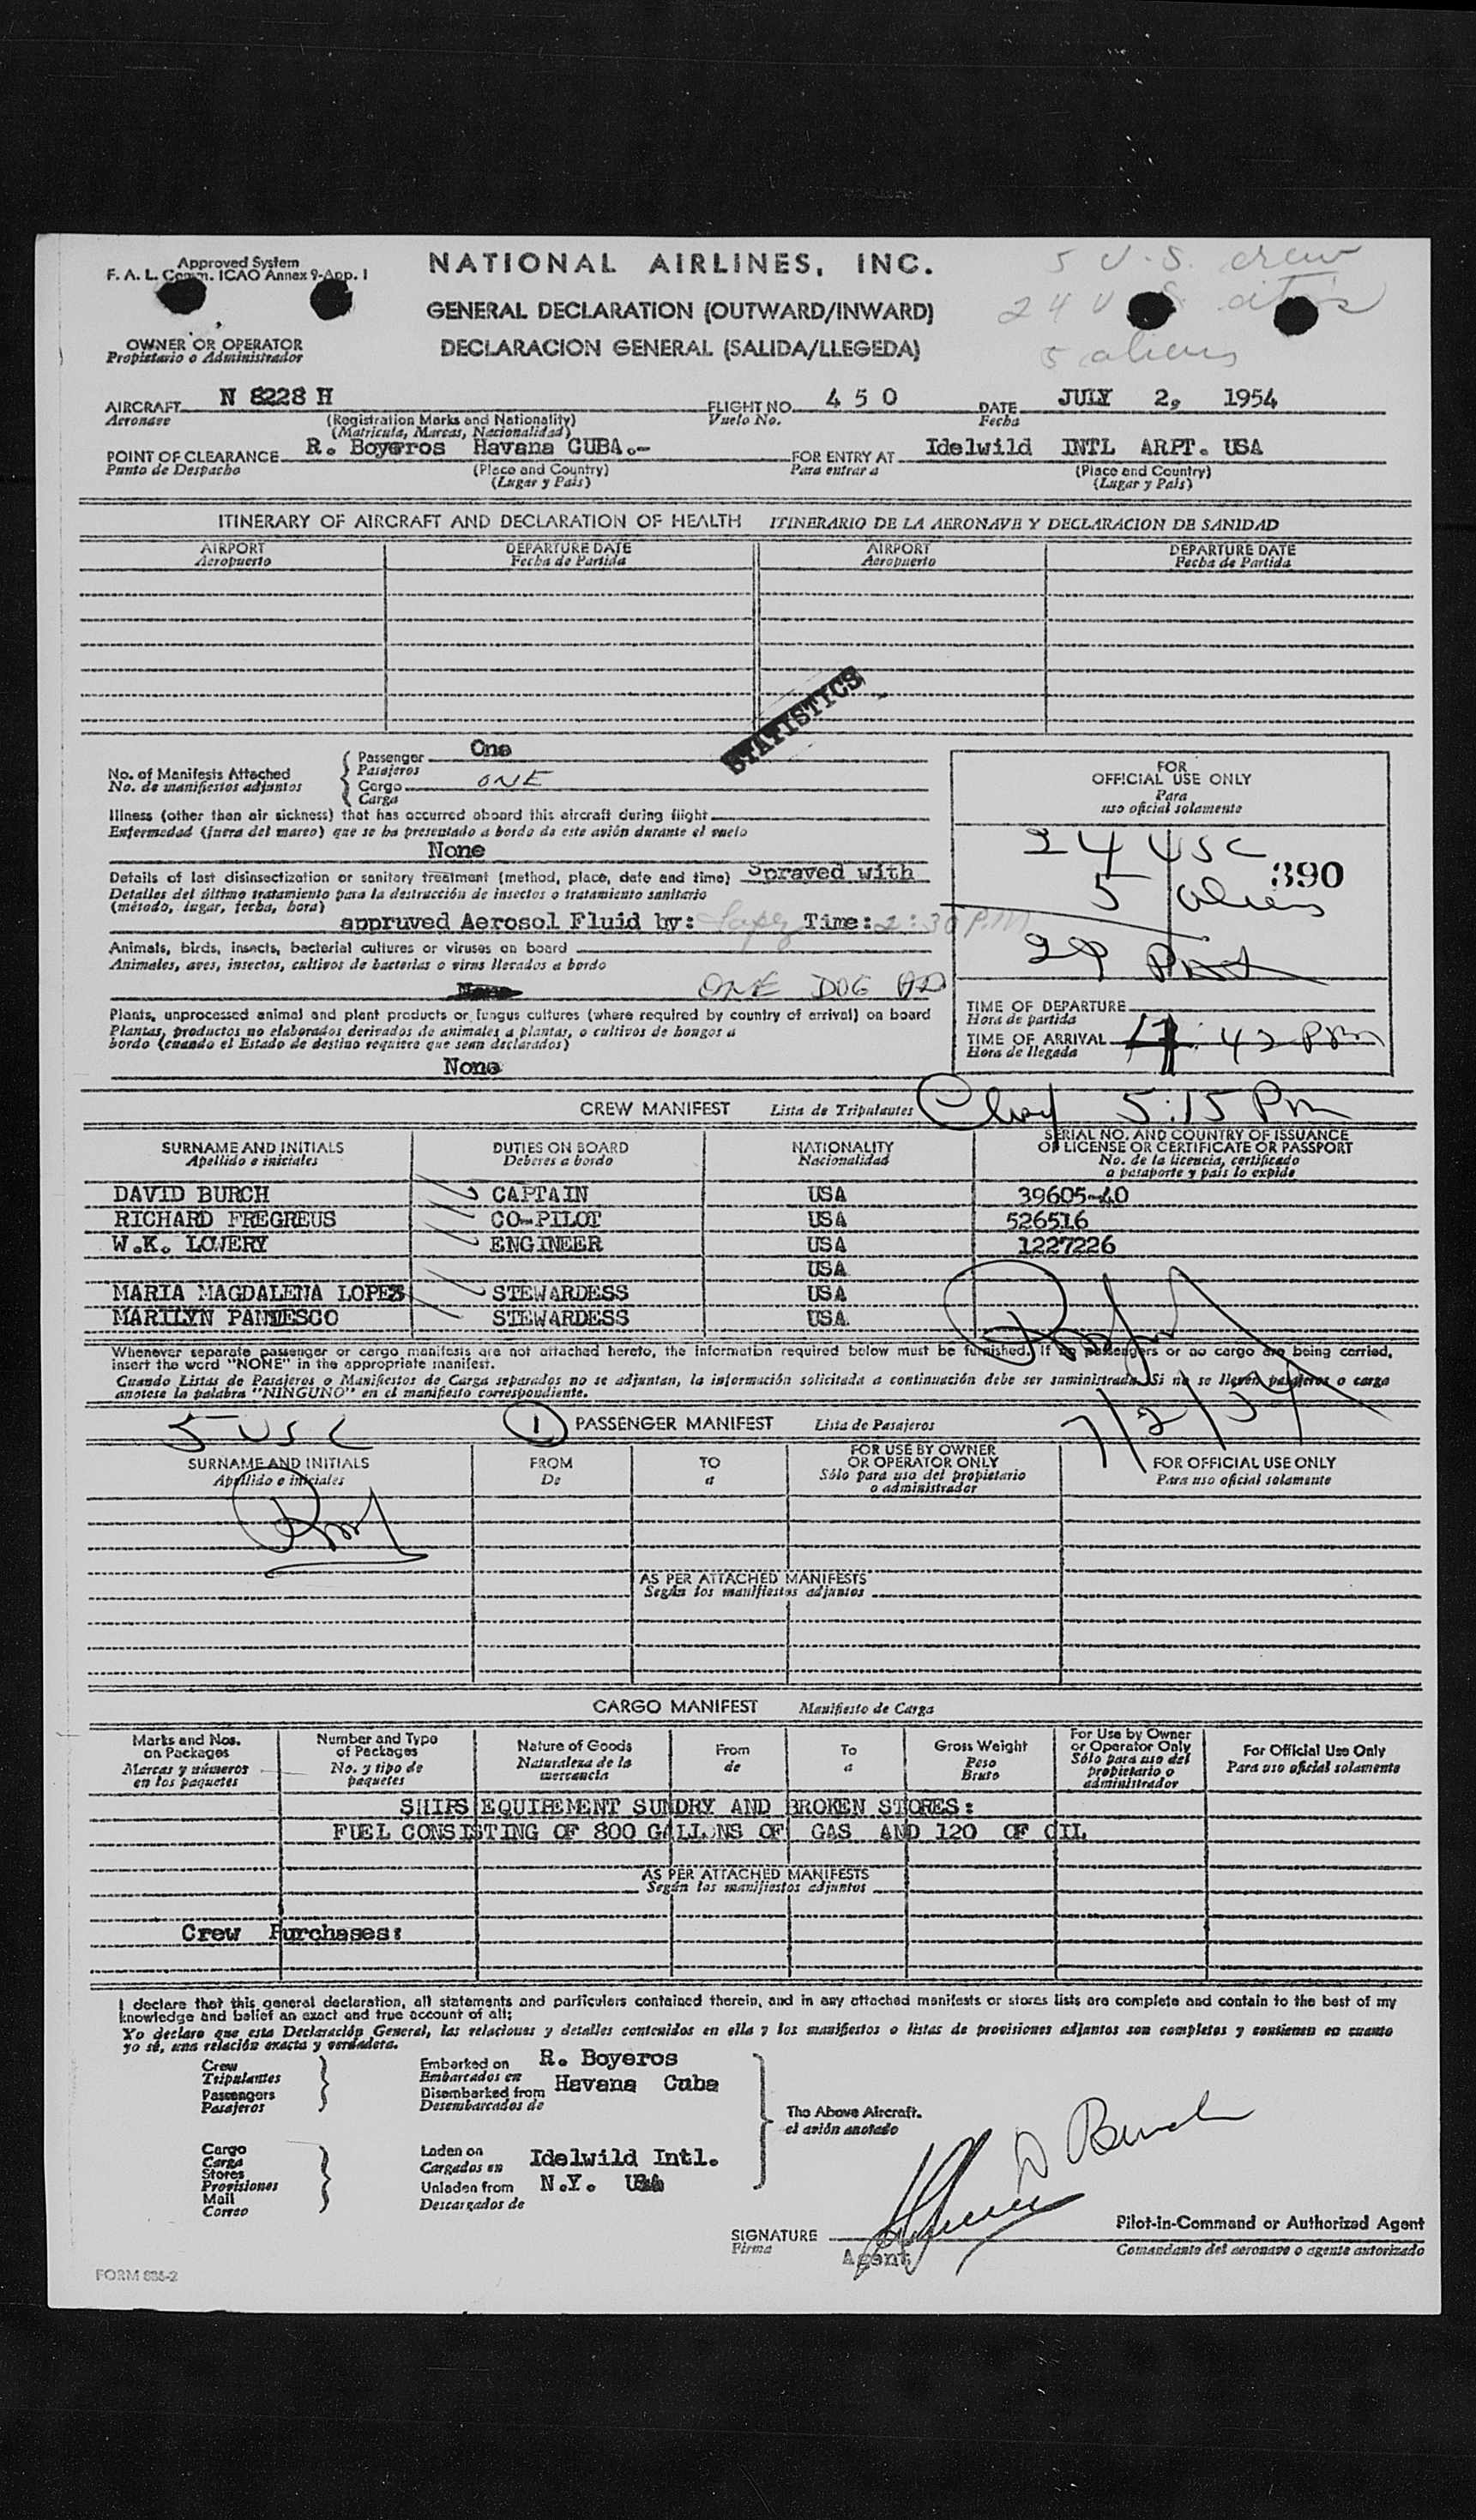 Approved System
F. A. L. Comm. ICAO Annex 9-App. I
NATIONAL AIRLINES, INC.
5 U.S. crew
GENERAL DECLARATION (OUTWARD/INWARD)
24 U S. cit's
OWNER OR OPERATOR
Propietario o Administrador
DECLARACION GENERAL (SALIDA/LLEGEDA)
5 aliens
AIRCRAFT N 8228 H FLIGHT NO. 4 5 0 DATE JULY 2, 1954
Aeronave (Registration Marks and Nationality) Vuelo No. Fecha
(Matricula, Marcas, Nacionalidad)
POINT OF CLEARANCE R. Boyeros Havana CUBA.- FOR ENTRY AT Idelwild INTL ARPT. USA
Punto de Despacho (Place and Country) Para entrar a (Place and Country)
(Lugar y País) (Lugar y País)
ITINERARY OF AIRCRAFT AND DECLARATION OF HEALTH ITINERARIO DE LA AERONAVE Y DECLARACION DE SANIDAD
AIRPORT DEPARTURE DATE AIRPORT DEPARTURE DATE
Aeropuerto Fecha de Partida Aeropuerto Fecha de Partida
STATISTICS
No. of Manifests Attached
No. de manifiestos adjuntos
Passenger One
Pasajeros
Cargo ONE
Carga
FOR
OFFICIAL USE ONLY
Para
uso oficial solamente
Illness (other than air sickness) that has occurred aboard this aircraft during flight
Enfermedad (fuera del mareo) que se ha presentado a bordo de este avión durante el vuelo
None
24 USC
390
5 aliens
Details of last disinsectization or sanitary treatment (method, place, date and time) Sprayed with
Detalles del último tratamiento para la destrucción de insectos o tratamiento sanitario
(método, lugar, fecha, hora)
appruved Aerosol Fluid by: Lopez Time: 2:30 P.M
29
Animals, birds, insects, bacterial cultures or viruses on board
Animales, aves, insectos, cultivos de bacterias o virus llevados a bordo
None ONE DOG
Plants, unprocessed animal and plant products or fungus cultures (where required by country of arrival) on board
Plantas, productos no elaborados derivados de animales a plantas, o cultivos de hongos a
bordo (cuando el Estado de destino requiere que sean declarados)
None
TIME OF DEPARTURE
Hora de partida
TIME OF ARRIVAL 4:42 PM
Hora de llegada
5:15 Pm
CREW MANIFEST Lista de Tripulantes
SURNAME AND INITIALS DUTIES ON BOARD NATIONALITY SERIAL NO. AND COUNTRY OF ISSUANCE
Apellido e iniciales Deberes a bordo Nacionalidad OF LICENSE OR CERTIFICATE OR PASSPORT
No. de la licencia, certificado
o pasaporte y país lo expide
DAVID BURCH CAPTAIN USA 39605-40
RICHARD FREGREUS CO-PILOT USA 526516
W.K. LOWERY ENGINEER USA 1227226
USA
MARIA MAGDALENA LOPEZ STEWARDESS USA
MARILYN PANTESCO STEWARDESS USA
Whenever separate passenger or cargo manifests are not attached hereto, the information required below must be furnished. If no passengers or no cargo are being carried,
insert the word "NONE" in the appropriate manifest.
Cuando Listas de Pasajeros o Manifiestos de Carga separados no se adjuntan, la información solicitada a continuación debe ser suministrada. Si no se lleven pasajeros o carga
anotese la palabra "NINGUNO" en el manifiesto correspondiente.
7/2/54
5 USC
1 PASSENGER MANIFEST Lista de Pasajeros
SURNAME AND INITIALS FROM TO FOR USE BY OWNER FOR OFFICIAL USE ONLY
Apellido e iniciales De a OR OPERATOR ONLY Para uso oficial solamente
Sólo para uso del propietario
o administrador
AS PER ATTACHED MANIFESTS
Según los manifiestos adjuntos
CARGO MANIFEST Manifiesto de Carga
Marks and Nos.
on Packages
Marcas y números
en los paquetes
Number and Type
of Packages
No. y tipo de
paquetes
Nature of Goods
Naturaleza de la
mercancia
From
de
To
a
Gross Weight
Peso
Bruto
For Use by Owner
or Operator Only
Sólo para uso del
propietario o
administrador
For Official Use Only
Para uso oficial solamente
SHIPS EQUIPEMENT SUNDRY AND BROKEN STORES:
FUEL CONSISTING OF 800 GALLONS OF GAS AND 120 OF OIL
AS PER ATTACHED MANIFESTS
Según los manifiestos adjuntos
Crew Purchases:
I declare that this general declaration, all statements and particulars contained therein, and in any attached manifests or stores lists are complete and contain to the best of my
knowledge and belief an exact and true account of all;
Yo declaro que esta Declaración General, las relaciones y detalles contenidos en ella y los manifiestos o listas de provisiones adjuntos son completos y contienen en cuanto
yo sé, una relación exacta y verdadera.
Crew
Tripulantes
Passengers
Pasajeros
Embarked on R. Boyeros
Embarcados en
Disembarked from Havana Cuba
Desembarcados de
The Above Aircraft.
el avión anotado
Cargo
Carga
Stores
Provisiones
Mail
Correo
Laden on Idelwild Intl.
Cargados en
Unladen from N.Y. USA
Descargados de
D Burch
SIGNATURE
Firma
Agent
Pilot-in-Command or Authorized Agent
Comandante del aeronave o agente autorizado
FORM 885-2